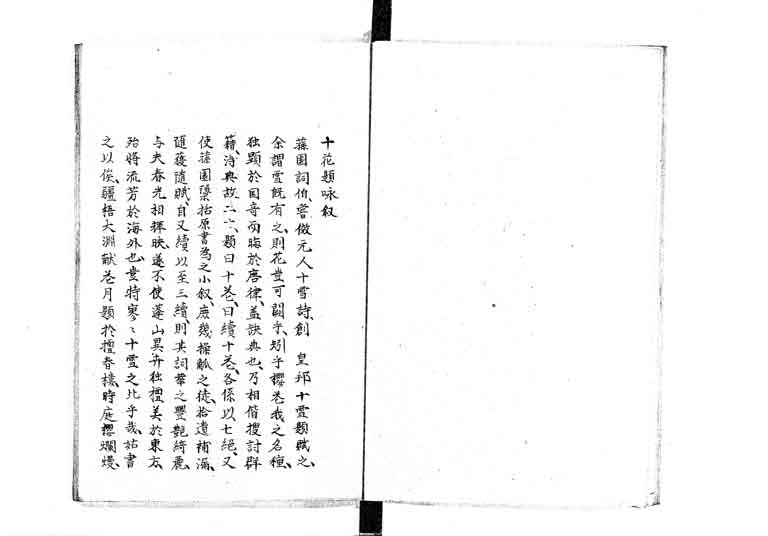 十花題咏叙
蘓国詞伯、嘗倣元人十雪詩、創　皇邦十雪題賦之、
余謂雪既有之、則花豈可闕乎、矧乎櫻花我之名種、
独顕於国音而晦於唐律、蓋缺典也、乃相偕捜討群
籍、得典故二十、題曰十花、曰續十花、各係以七絶、又
使蘓園檃括原書為之小叙、庶幾操觚之徒、拾遺補漏、
随獲随賦、自又續以至三續、則其詞華之豐艶綺麗、
与夫春光相輝映、遂不使蓬山異卉独擅美於東方、
殆将流芳於海外也、豈特寥〻十雪之比乎哉、姑書
之以俟、彊梧大淵献花月題於擅春楼、時庭櫻爛熳、